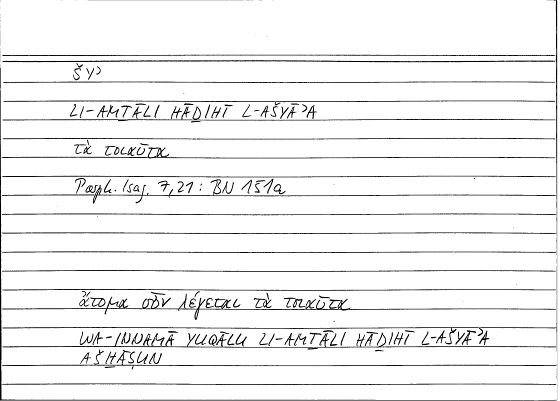 ŠYʾ
LI-AMṮĀLI HĀḎIHĪ L-AŠYĀʾA
τὰ τοιαῦτα
Porph. Isag. 7,21: BN 151a
ἄτομα οὖν λέγεται τὰ τοιαῦτα
WA-INNAMĀ YUQĀLU LI-AMṮĀLI HĀḎIHĪ L-AŠYĀʾA
AŠḪĀṢUN